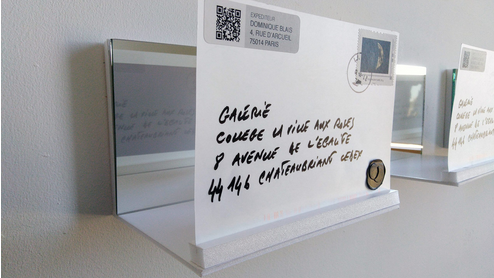 EXPÉDITEUR
DOMINIQUE BLAIS
4, RUE D'ARCUEIL
75014 PARIS
GALERIE
COLLEGE LA VILLE AUX ROSES
8 AVENUE DE L'EGALITE
44146 CHATEAUBRIANT CEDEX